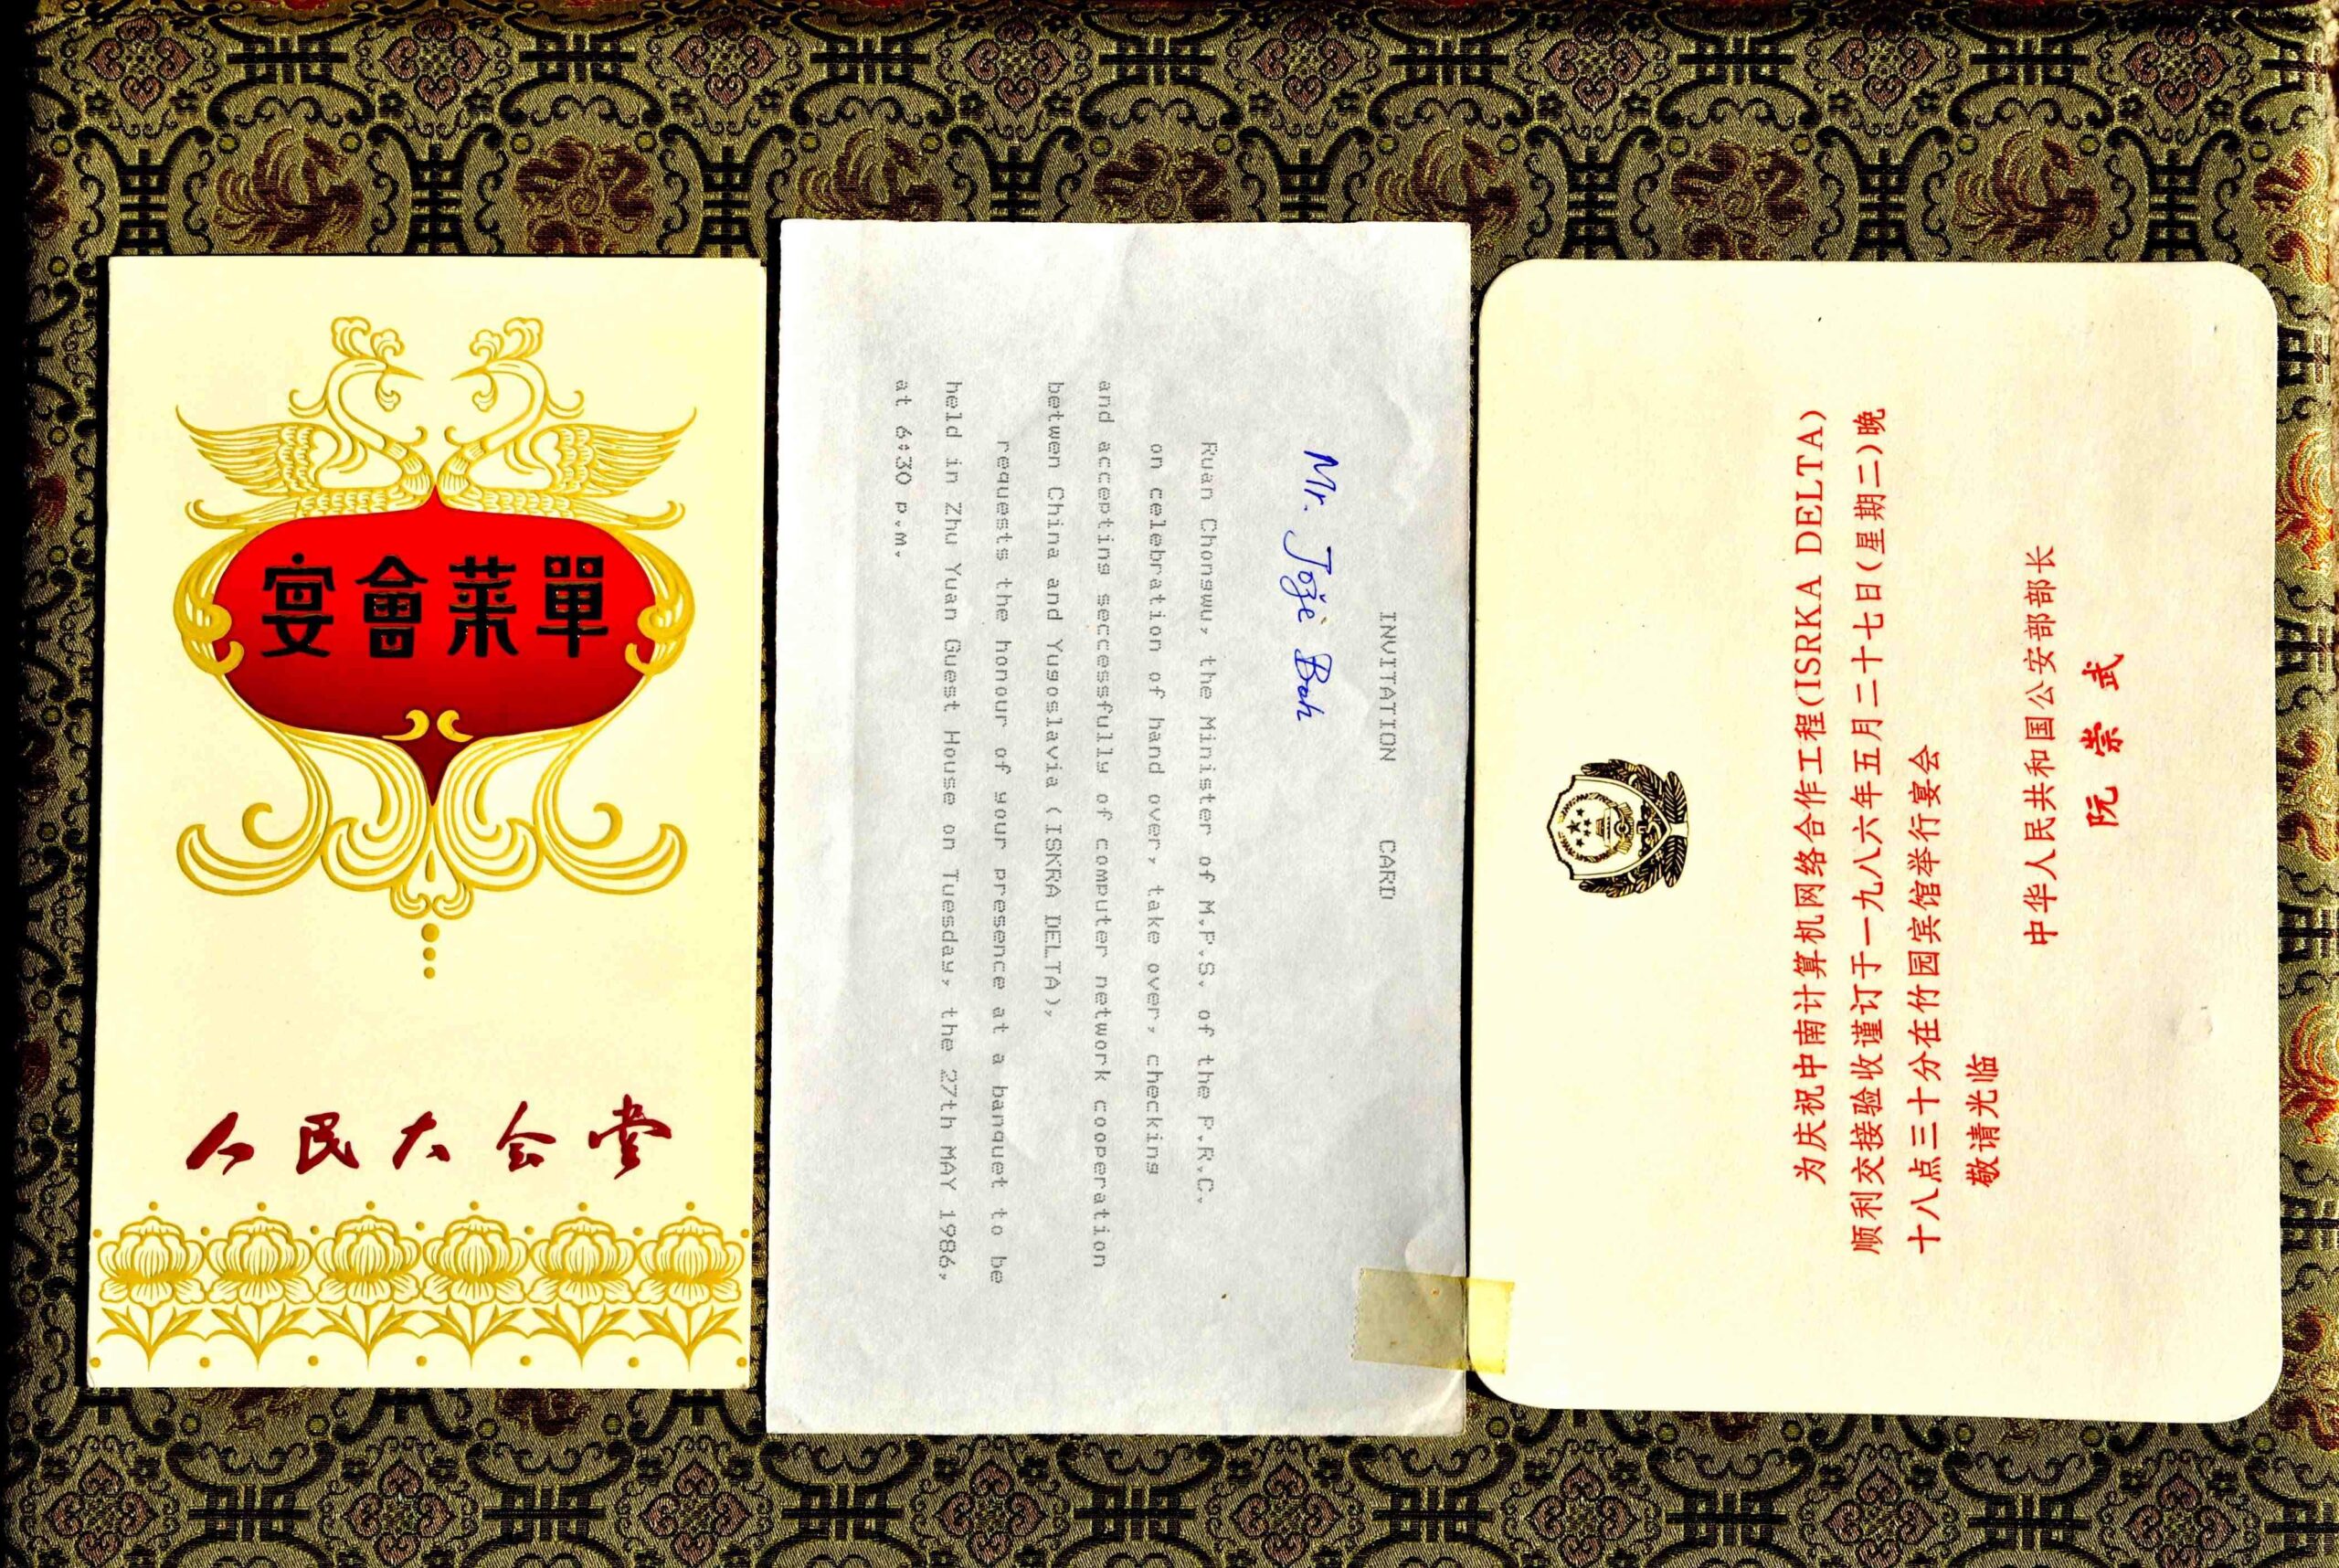 宴會菜單
人民大会堂
INVITATION CARD
Mr. Jože Boh
Ruan Chongwu, the Minister of M.P.S. of the P.R.C.
on celebration of hand over, take over, checking
and accepting seccessfully of computer network cooperation
betwen China and Yugoslavia (ISKRA DELTA),
requests the honour of your presence at a banquet to be
held in Zhu Yuan Guest House on Tuesday, the 27th MAY 1986,
at 6:30 p.m.
为庆祝中南计算机网络合作工程(ISRKA DELTA)
顺利交接验收谨订于一九八六年五月二十七日(星期二)晚
十八点三十分在竹园宾馆举行宴会
敬请光临
中华人民共和国公安部部长
阮崇武